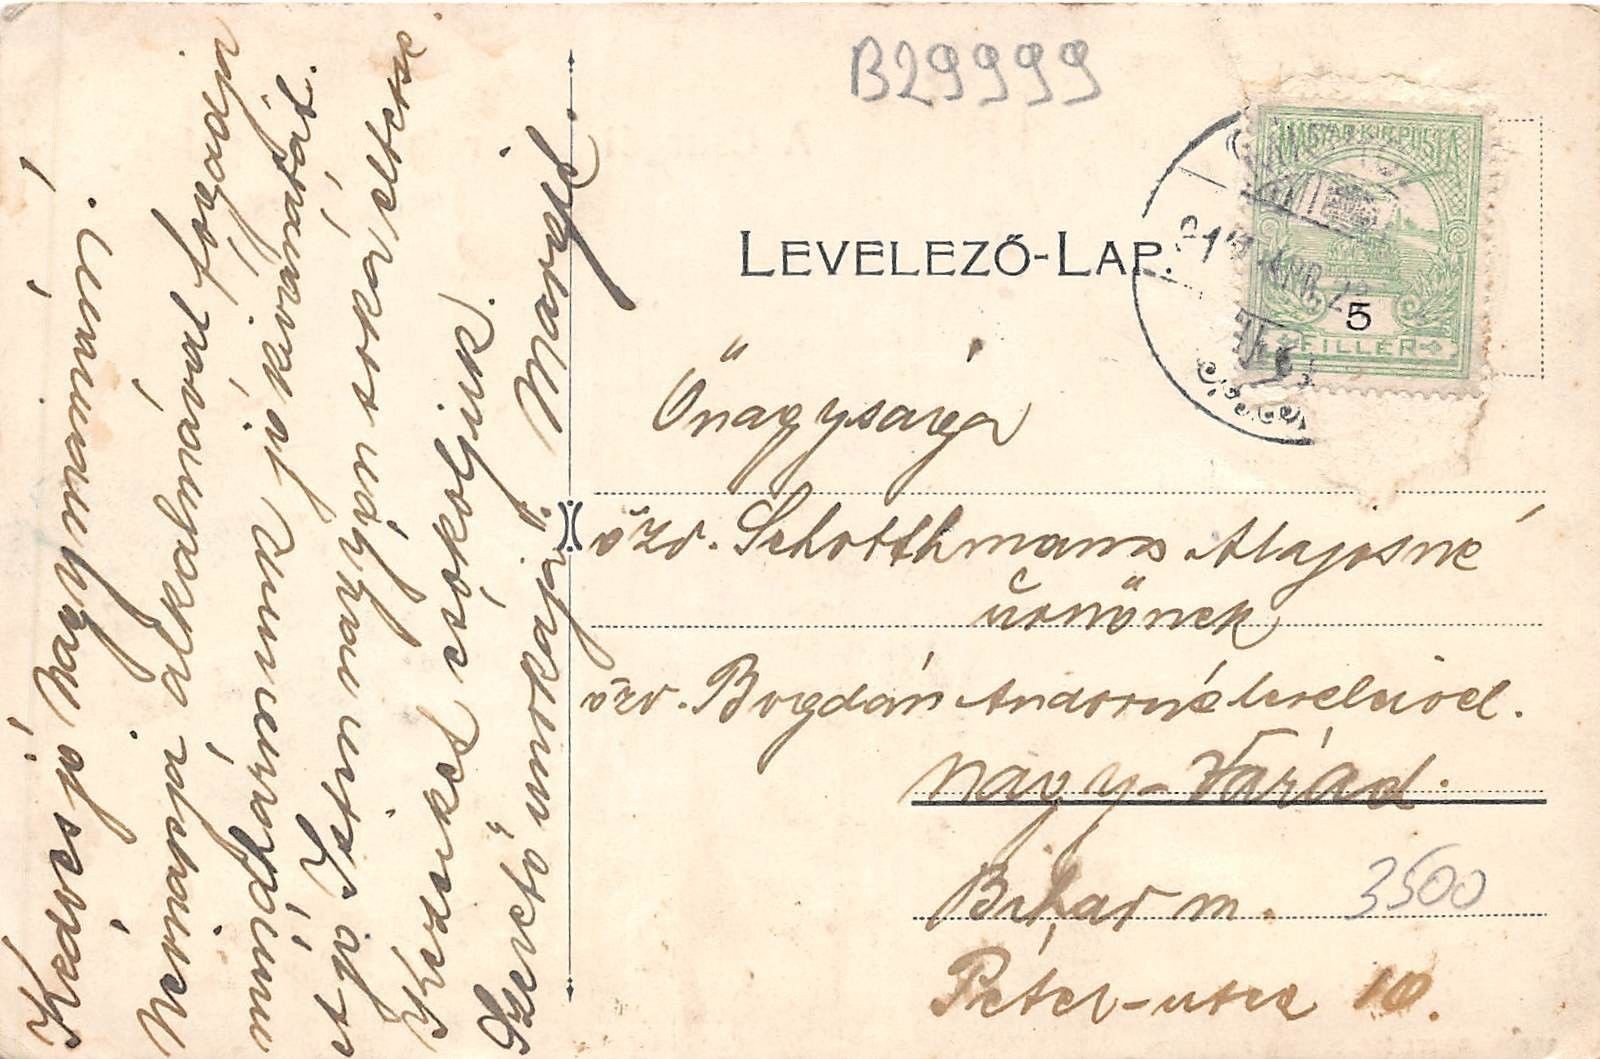 Kedves jó Nagymamám!
Névnapja alkalmával fogadja
mindnyájunk jókivánatát.
A jó Isten nagyon soká éltesse.
Kedseiket csókoljuk.
Szerető unokája Margit.
B29999
LEVELEZŐ-LAP.
MAGYAR KIR. POSTA
5
FILLÉR
Őnagysága
özv. Schotthmann Alajosné
úrnőnek
özv. Bogdán Andorné leveleivel.
Nagy-Várad.
Bihar m.
3500
Péter-utca 10.